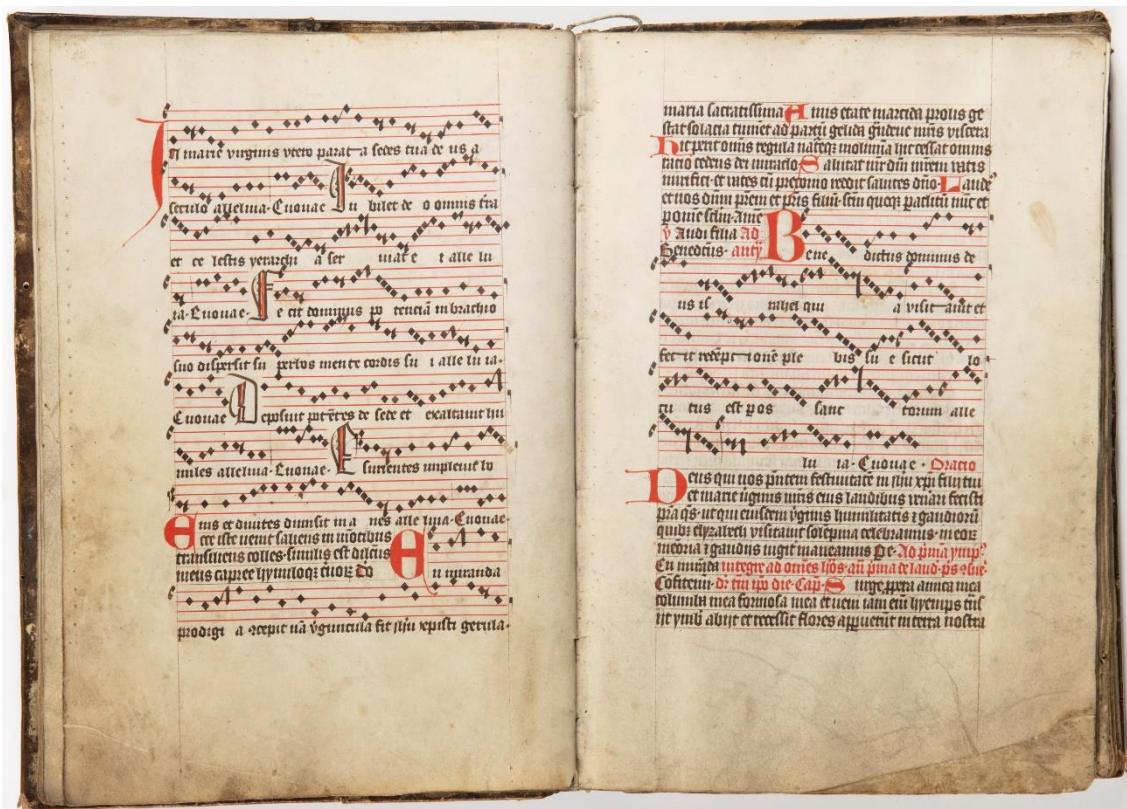 In marie virginis vtero parat a sedes tua de us a
seculo alleluia · Euouae Iu bilet de o omnis tra
et ce lestis yerarchi a ser uiat e i alle lu
ia · Euouae · Fe cit dominus po tenciā in brachio
suo dispersit su perbos mente cordis su i alle lu ia ·
Euouae Deposuit potētes de sede et exaltauit hu
miles alleluia · Euouae · Esurientes impleuit bo
nis et diuites dimisit in a nes alle luia · Euouae ·
Ecce iste uenit saliens in motibus
transiliens colles · similis est dilcūs
meus capree hymuloqz ceruorz Do En miranda
prodigi a recepit uā v̄guncula fit ih̄u xp̄isti gerula ·
maria sacratissima Anus etate marcida prolis ge
stat solacia tumet ad partū gelida viscera
Hic perit om̄is regula molimīa hic cessat om̄nis
racio cedens dei miraclo Salutat matrem vatis
mirifici · et vates cū preconio reddit salutes dn̄o · Laude
et nos dūm p̄rem et p̄ris filiū · scm̄ quoqz paclitū nūc et
p om̄e sclm · Ame
v Audi filia Ad
Benedcūs · antȳ Bene dictus dominus de
us is rahel qui a visit auit et
fec it redēpt ionē ple bis su e sicut lo
cu tus est p os sanc torum alle
lu ia · Euouae · Oracio
Deus qui nos p̄ntem festiuitatē in ih̄u xp̄i filij tui
et marie v̄ginis mr̄is eius laudibus venari fecisti
pra qs · ut qui eiusdem v̄ginis humilitatis ⁊ gaudiorū
quibz elyzabeth visitauit solēpnia celebramus · in eorz
meōria ⁊ gaudiis iugit maneamus Pe · Ad p̄miā ymp̄
Eu mūnda integre ad om̄es hōs · añ p̄ma de laud · ps
Cōfitem̄ · de tm̄ ip̄o die · Cap̄ · Surge ppera amica mea
columba mea formosa mea et ueni iam em̄ hyemps tn̄s
ijt ymb abijt et recessit flores apparuerūt in terra nostra